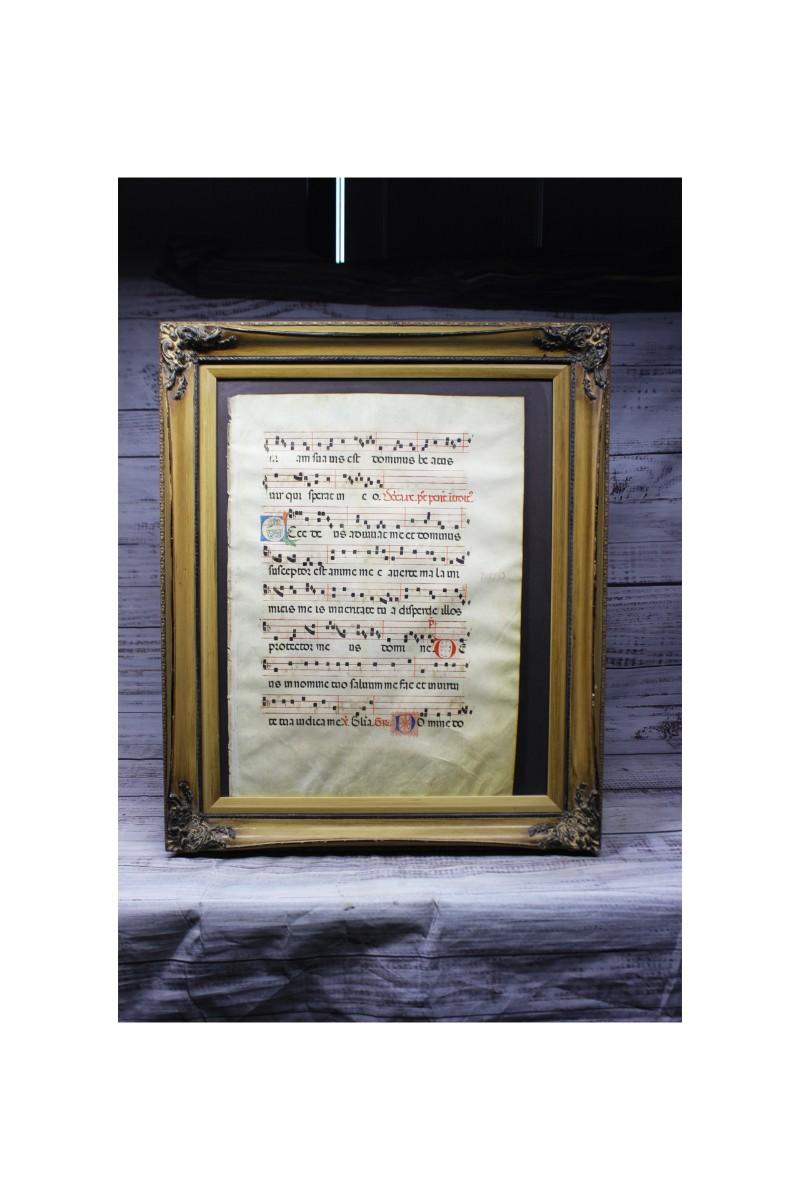 am sua uis est dominus be atus
uir qui sperat in e o.
Ecce de us adiuuat me et dominus
susceptor est anime me e auerte ma la ini
micis me is in ueritate tu a disperde illos
protector me us domi ne. De
us in nomine tuo saluum me fac et in uirtu
te tua iudica me. Glia. Do mine do